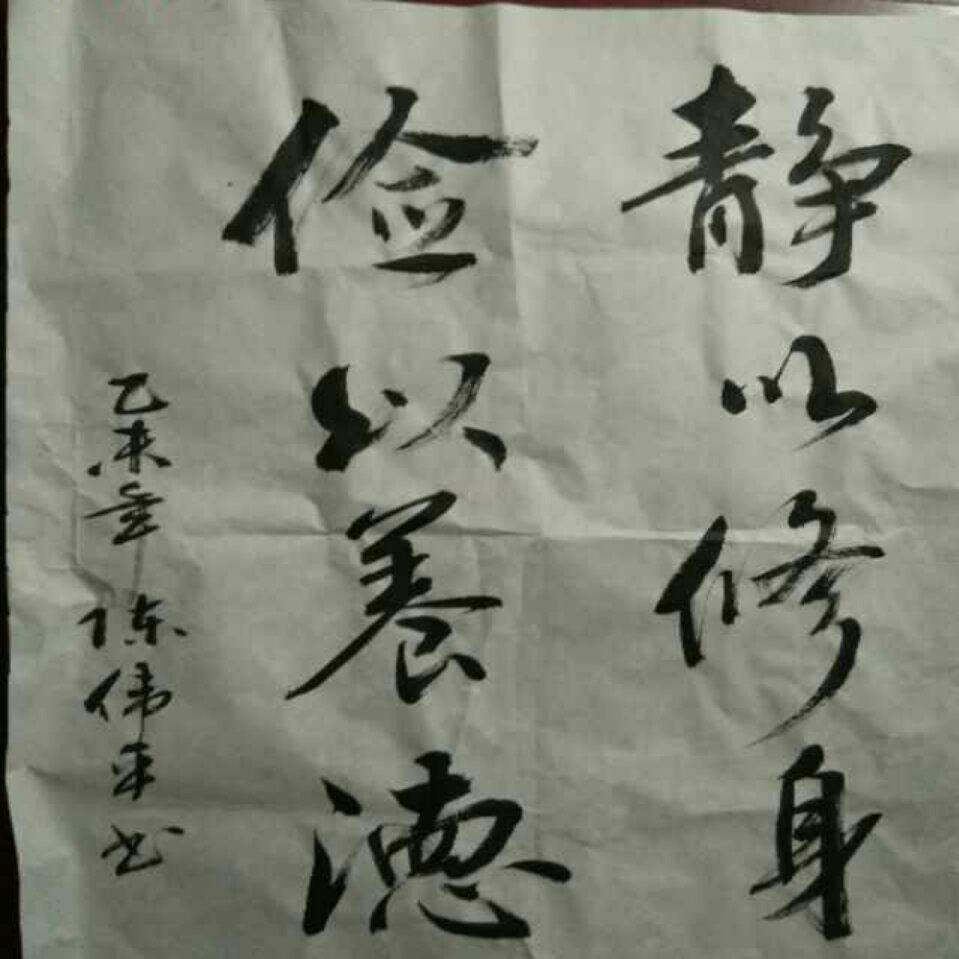 静以修身
俭以养德
乙未年 陈伟平书